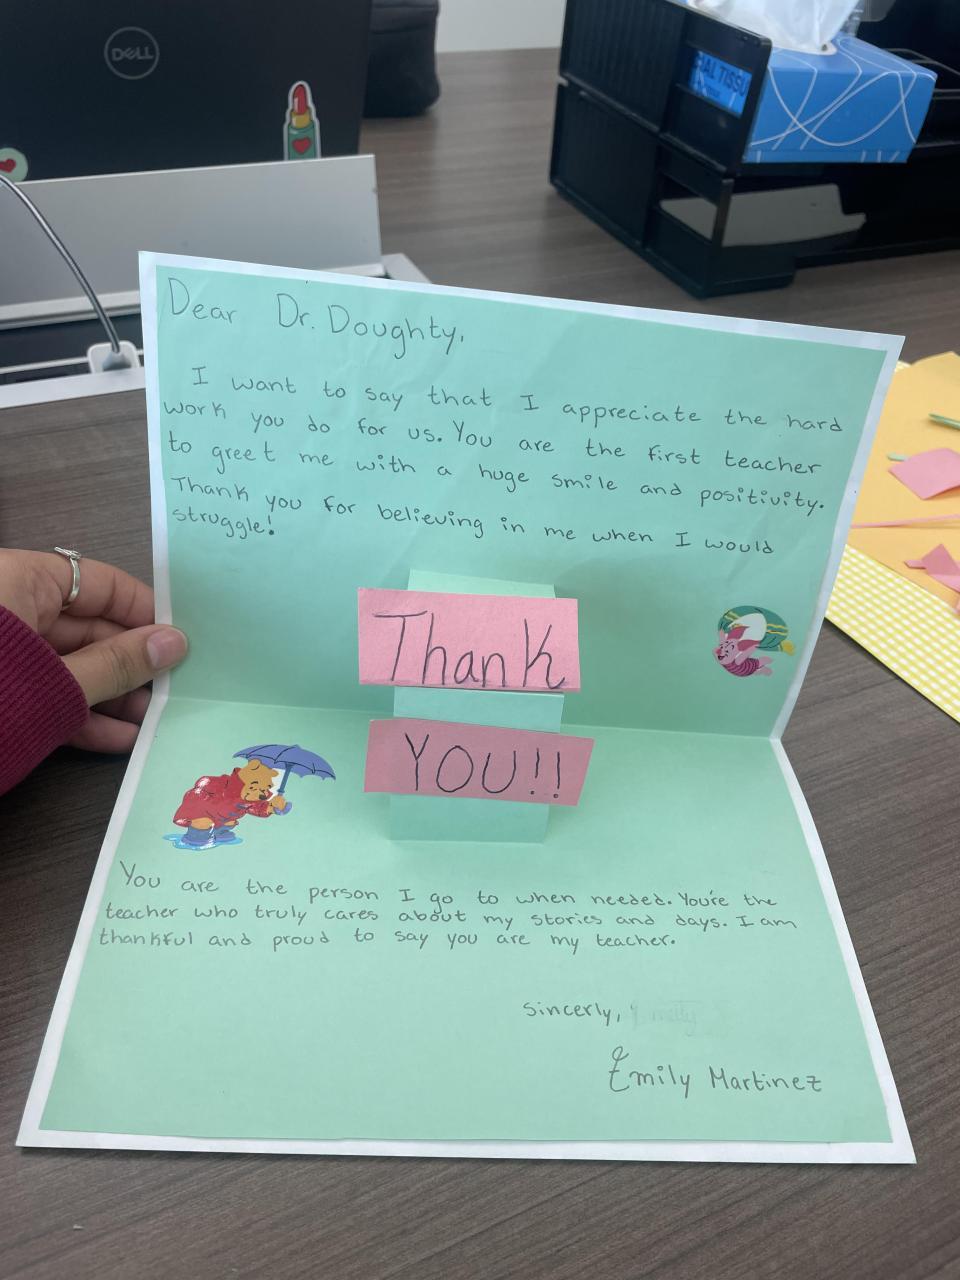 DELL
CIAL TISSU
Dear Dr. Doughty,
I want to say that I appreciate the hard
work you do for us. You are the first teacher
to greet me with a huge smile and positivity.
Thank you for believing in me when I would
struggle!
Thank
YOU!!
You are the person I go to when needed. You're the
teacher who truly cares about my stories and days. I am
thankful and proud to say you are my teacher.
Sincerly,
Emily Martinez